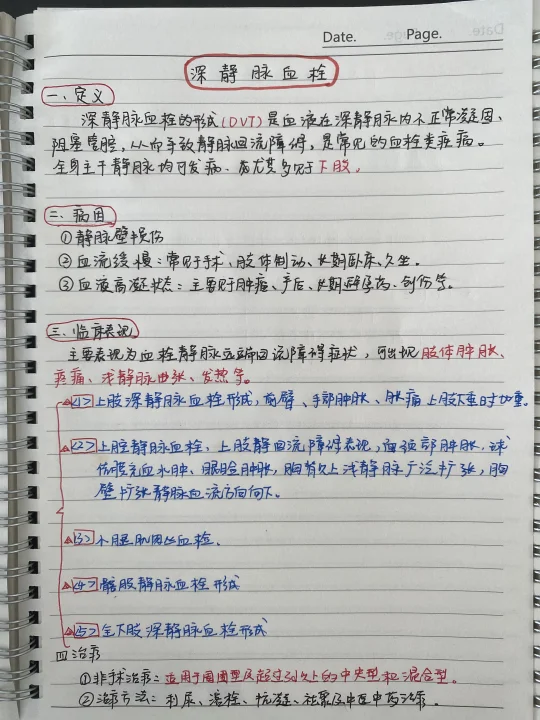 Date. Page.
深静脉血栓
一、定义
深静脉血栓的形成(DVT)是血液在深静脉内不正常凝固、
阻塞管腔,从而导致静脉回流障碍,是常见的血栓类疾病。
全身主干静脉均可发病、尤其多见于下肢。
二、病因
①静脉壁损伤
②血流缓慢:常见于手术、肢体制动、长期卧床、久坐。
③血液高凝状态:主要见于肿瘤、产后、长期避孕药、创伤等。
三、临床表现
主要表现为血栓静脉远端回流障碍症状,可出现肢体肿胀、
疼痛、浅静脉曲张、发热等。
<1>上肢深静脉血栓形成,前臂、手部肿胀、胀痛上肢下垂时加重。
<2>上腔静脉血栓、上肢静回流障碍表现,面颈部肿胀,球
结膜充血水肿、眼睑肿胀,胸背以上浅静脉广泛扩张,胸
壁扩张静脉血流方向向下。
<3>小腿肌肉丛血栓、
<4>髂股静脉血栓形成
<5>全下肢深静脉血栓形成
四治疗
①非手术治疗:适用于周围型及超过3d以上的中央型和混合型。
②治疗方法:利尿、溶栓、抗凝、祛聚及中医中药治疗。